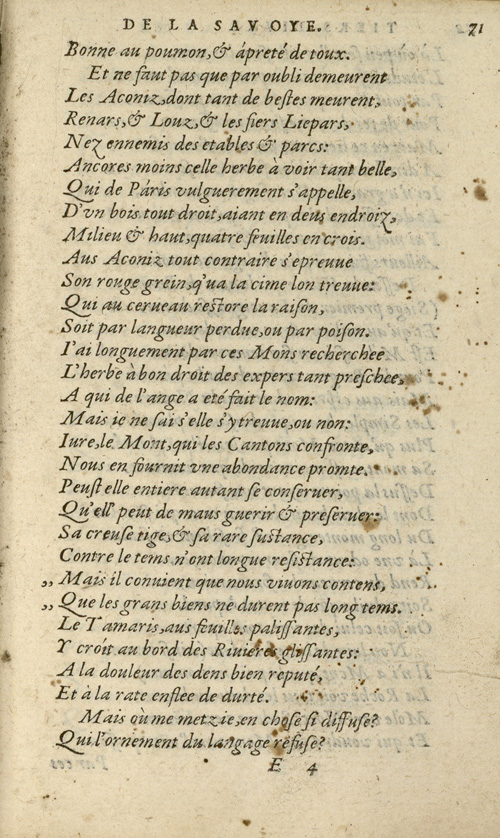 DE LA SAVOYE. 71
Bonne au poumon, & ápreté de toux.
Et ne faut pas que par oubli demeurent
Les Aconiz, dont tant de bestes meurent,
Renars, & Louz, & les fiers Liepars,
Nez ennemis des etables & parcs:
Ancores moins celle herbe à voir tant belle,
Qui de Páris vulguerement s'appelle,
D'vn bois tout droit, aiant en deus endroiz,
Milieu & haut, quatre feuilles en crois.
Aus Aconiz tout contraire s'epreuue
Son rouge grein, q'ua la cime lon treuue:
Qui au cerueau restore la raison,
Soit par langueur perdue, ou par poison.
I'ai longuement par ces Mons recherchee
L'herbe à bon droit des expers tant preschee,
A qui de l'ange a eté fait le nom:
Mais ie ne sai s'elle s'y treuue, ou non:
Iure, le Mont, qui les Cantons confronte,
Nous en fournit vne abondance promte.
Peust elle entiere autant se conseruer,
Qu'ell' peut de maus guerir & preseruer:
Sa creuse tige, & sa rare sustance,
Contre le tems n'ont longue resistance.
,, Mais il conuient que nous viuons contens,
,, Que les grans biens ne durent pas long tems.
Le Tamaris, aus feuilles palissantes,
Y croít au bord des Riuieres glissantes:
A la douleur des dens bien reputé,
Et à la rate enflee de durté.
Mais ou me metz ie, en chose si diffuse?
Qui l'ornement du langage refuse?
E 4